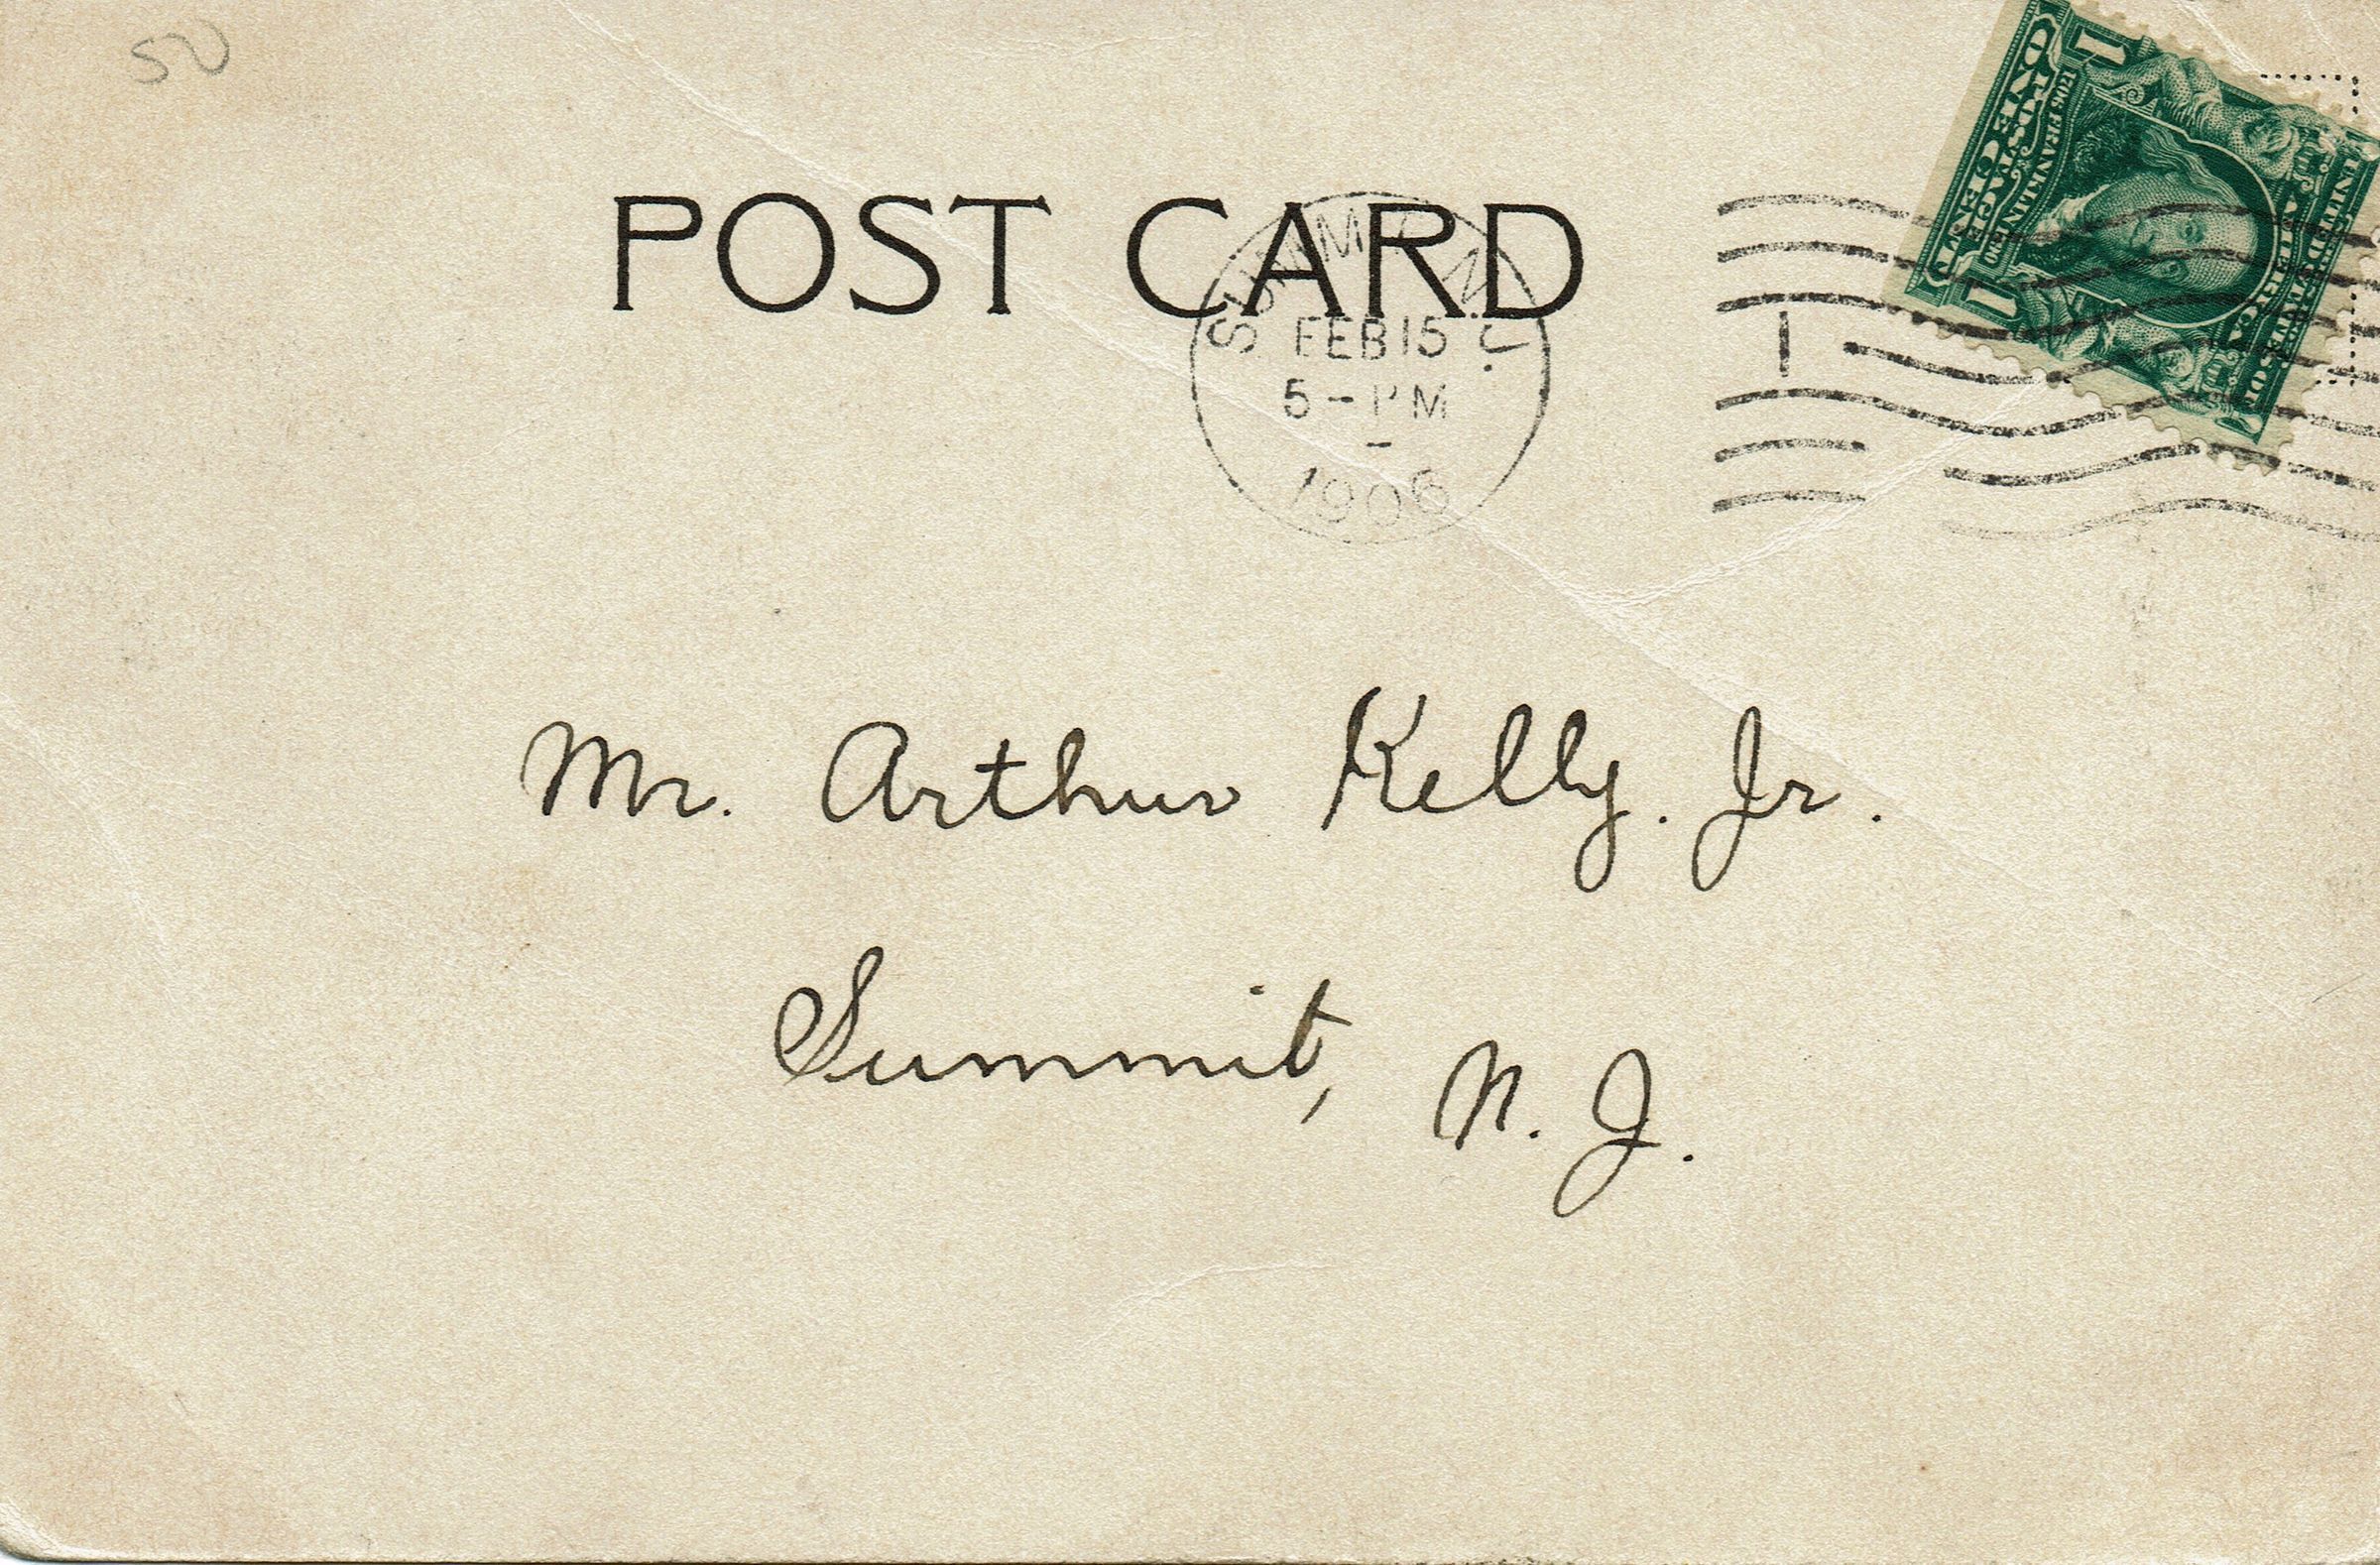 50
POST CARD
SUMMIT N.J.
FEB 15
5 - PM
1906
1
UNITED STATES OF AMERICA
POSTAGE
SERIES 1902
1706 FRANKLIN 1790
1 ONE CENT 1
Mr. Arthur Kelly. Jr.
Summit, N. J.